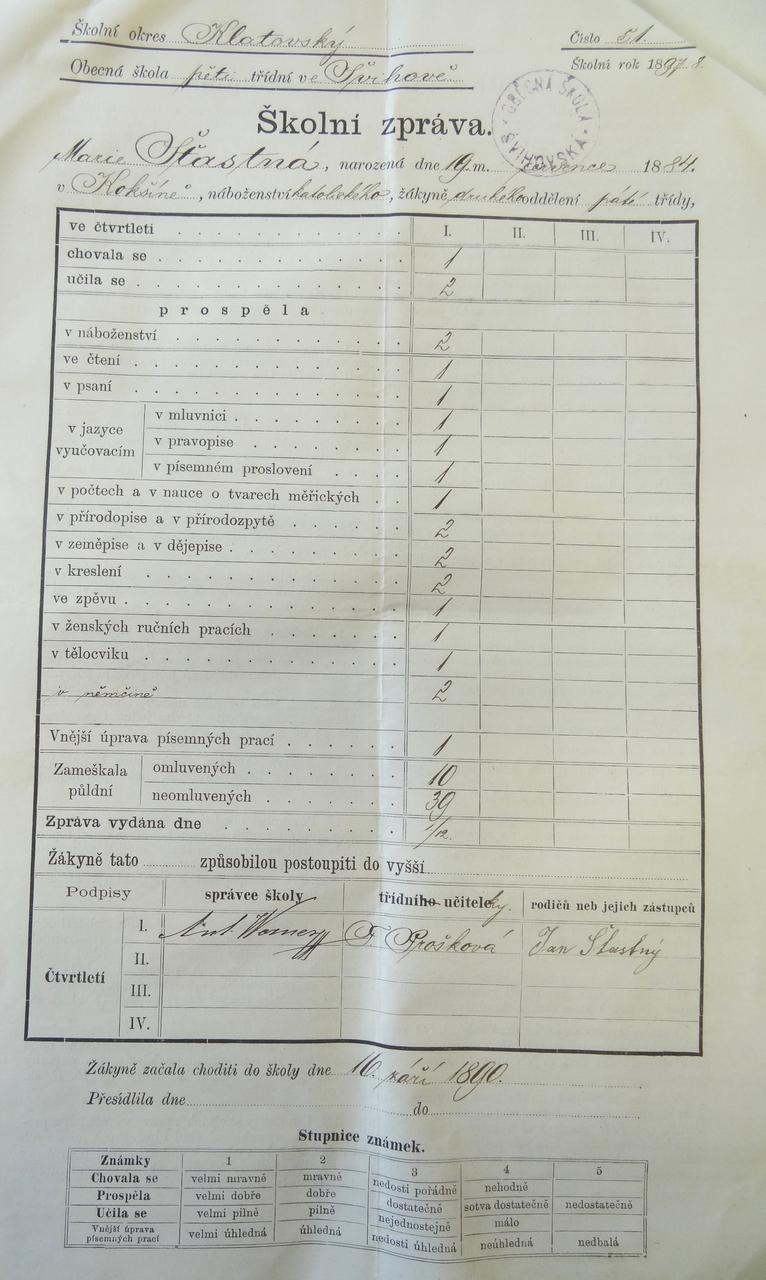 Školní okres Klatovský
Číslo 51.
Obecná škola pěti třídní ve Švihově
Školní rok 1897/8.
OBECNÁ ŠKOLA ŠVIHOVSKÁ
Školní zpráva.
Marie Šťastná, narozená dne 19. m. července 1884.
v Kokšíně, náboženství katolického, žákyně druhého oddělení páté třídy,
ve čtvrtletí I. II. III. IV.
chovala se 1
učila se 2
prospěla
v náboženství 2
ve čtení 1
v psaní 1
v jazyce vyučovacím
v mluvnici 1
v pravopise 1
v písemném proslovení 1
v počtech a v nauce o tvarech měřických 1
v přírodopise a v přírodozpytě 2
v zeměpise a v dějepise 2
v kreslení 2
ve zpěvu 1
v ženských ručních pracích 1
v tělocviku 1
v němčině 2
Vnější úprava písemných prací 1
Zameškala půldní
omluvených 10
neomluvených 39
Zpráva vydána dne 1/12.
Žákyně tato způsobilou postoupiti do vyšší
Podpisy správce školy třídního učitelky. rodičů neb jejich zástupců
Čtvrtletí
I. Ant. F. Prošková Jan Šťastný
II.
III.
IV.
Žákyně začala choditi do školy dne 16. září 1890.
Přesídlila dne do
Stupnice známek.
Známky 1 2 3 4 5
Chovala se velmi mravně mravně nedosti pořádně nehodně
Prospěla velmi dobře dobře dostatečně sotva dostatečně nedostatečně
Učila se velmi pilně pilně nejednostejně málo
Vnější úprava písemných prací velmi úhledná úhledná nedosti úhledná neúhledná nedbalá